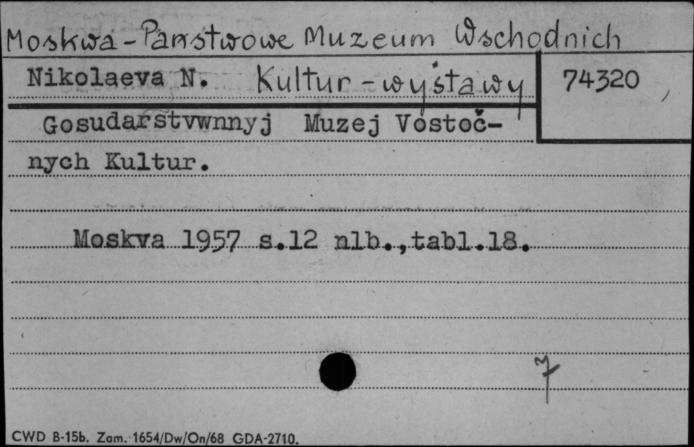 Moskwa - Państwowe Muzeum Wschodnich
Nikolaeva N. Kultur - wystawy 74320
Gosudarstvwnnyj Muzej Vostoč-
nych Kultur.
Moskva 1957 s.12 nlb.,tabl.18.
7
CWD B-15b. Zam. 1654/Dw/On/68 GDA-2710.